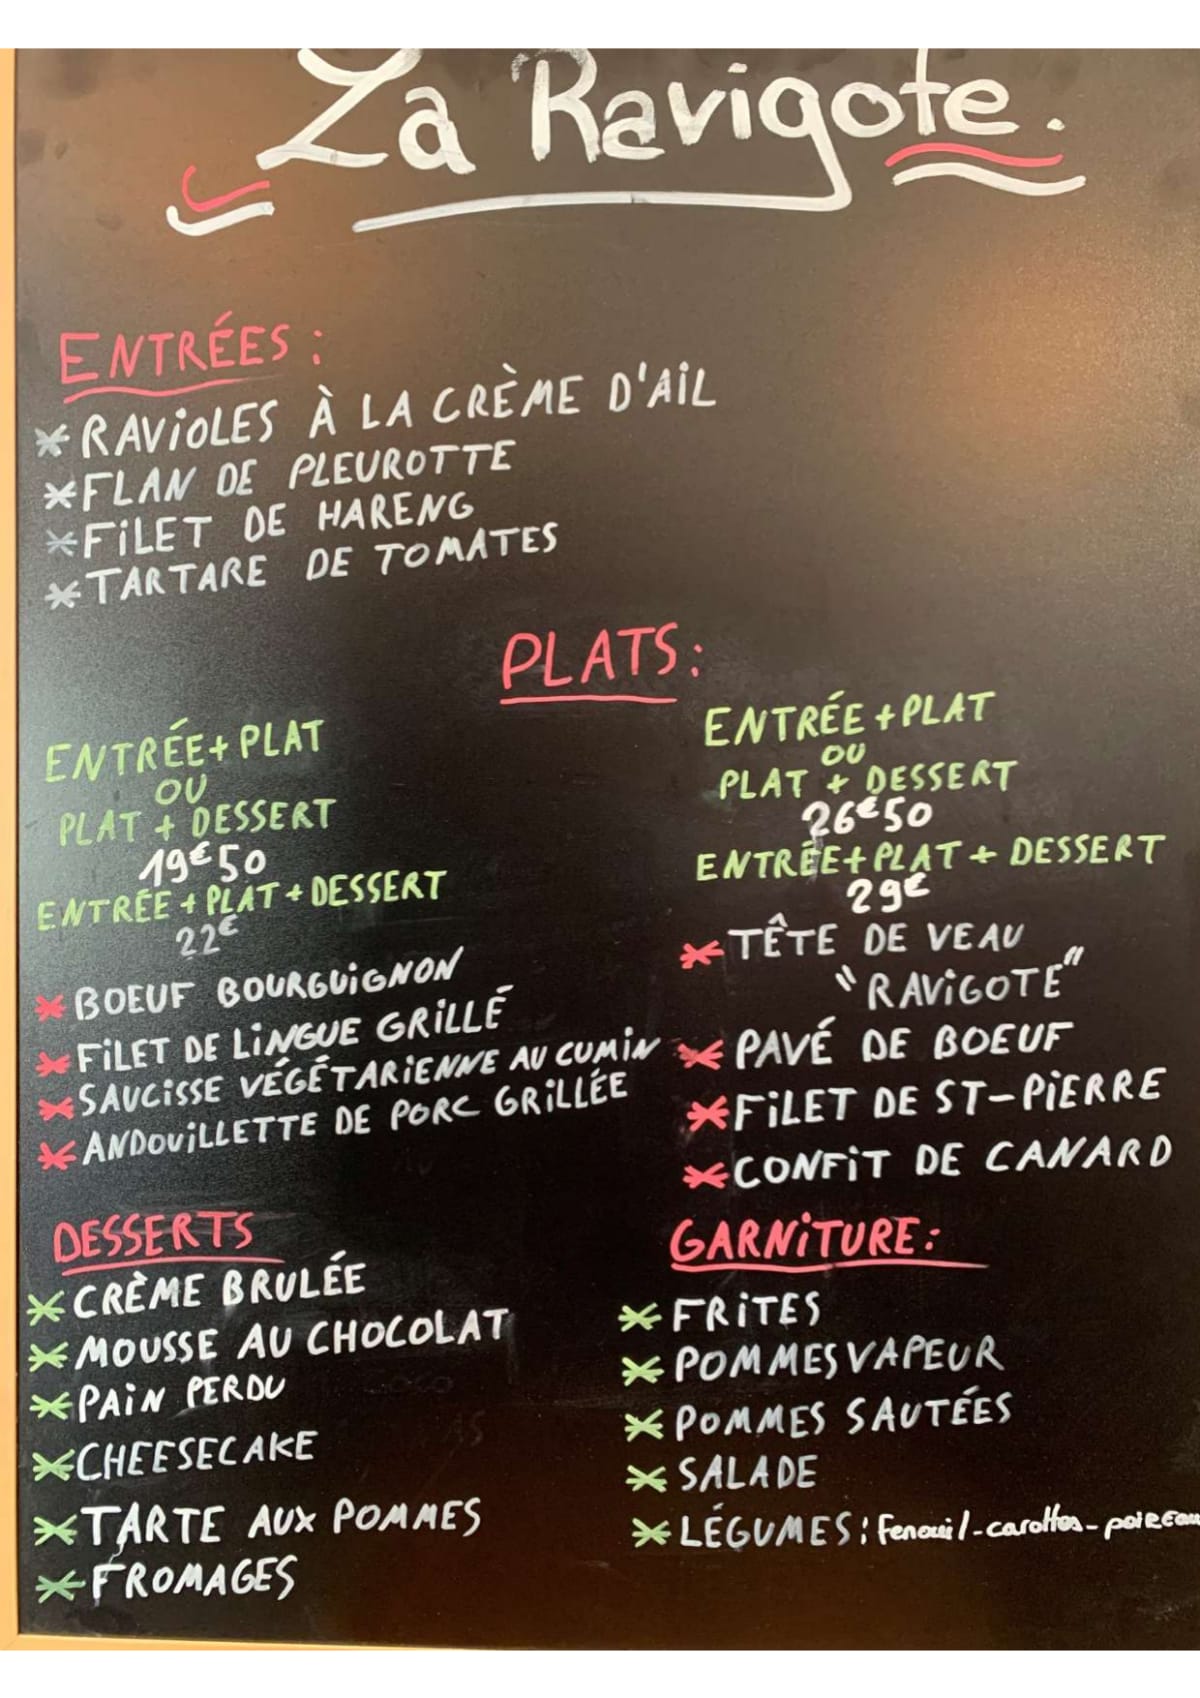 La Ravigote.
ENTRÉES :
* RAViOLES À LA CRÈME D'AiL
* FLAN DE PLEUROTTE
* FiLET DE HARENG
* TARTARE DE TOMATES
PLATS :
ENTRÉE + PLAT
OU
PLAT + DESSERT
19€50
ENTRÉE + PLAT + DESSERT
22€
* BOEUF BOURGUiGNON
* FiLET DE LiNGUE GRiLLÉ
* SAUCiSSE VÉGÉTARiENNE AU CUMiN
* ANDOUiLLETTE DE PORC GRiLLÉE
ENTRÉE + PLAT
OU
PLAT + DESSERT
26€50
ENTRÉE + PLAT + DESSERT
29€
* TÊTE DE VEAU
"RAViGOTE"
* PAVÉ DE BOEUF
* FiLET DE ST-PiERRE
* CONFiT DE CANARD
DESSERTS
* CRÈME BRULÉE
* MOUSSE AU CHOCOLAT
* PAiN PERDU
* CHEESECAKE
* TARTE AUX POMMES
* FROMAGES
GARNiTURE :
* FRiTES
* POMMES VAPEUR
* POMMES SAUTÉES
* SALADE
* LÉGUMES : fenouil - carottes - poireau